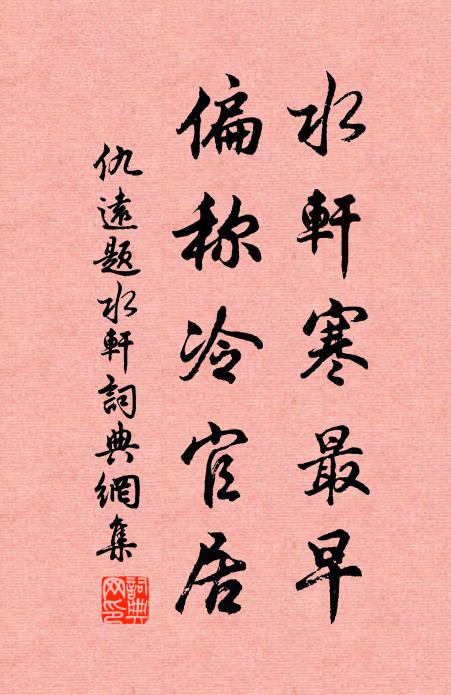 水軒寒最早
偏称冷官居
仇遠題水軒詞典網集
詞典网印